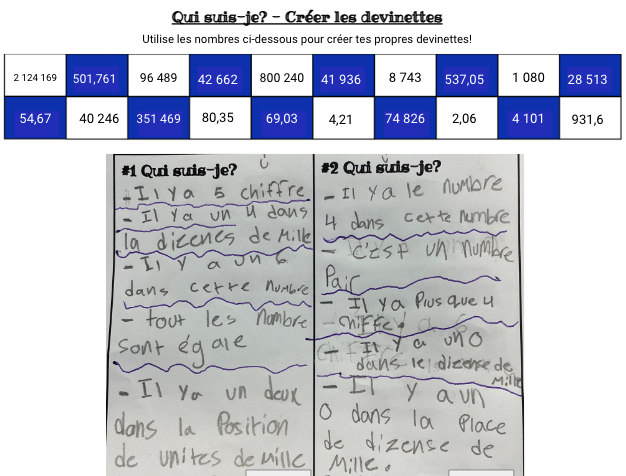 Qui suis-je? - Créer les devinettes
Utilise les nombres ci-dessous pour créer tes propres devinettes!
2 124 169 501,761 96 489 42 662 800 240 41 936 8 743 537,05 1 080 28 513
54,67 40 246 351 469 80,35 69,03 4,21 74 826 2,06 4 101 931,6
#1 Qui suis-je?
- Il Ya 5 chiffre
- Il Ya un 4 dans
la dizenes de Mille
- Il Y a un 6
dans cette Numbre
- tout les Nombre
sont égale
- Il Ya un deux
dans la Position
de unites de Mille
#2 Qui suis-je?
- Il Ya le Numbre
4 dans cette Numbre
- C'est un Numbre
Pair
- Il Ya Plus que 4
chiffe.
- Il Y a un 0
dans le dizense de
Mille
- Il Y a un
0 dans la Place
de dizense de
Mille.